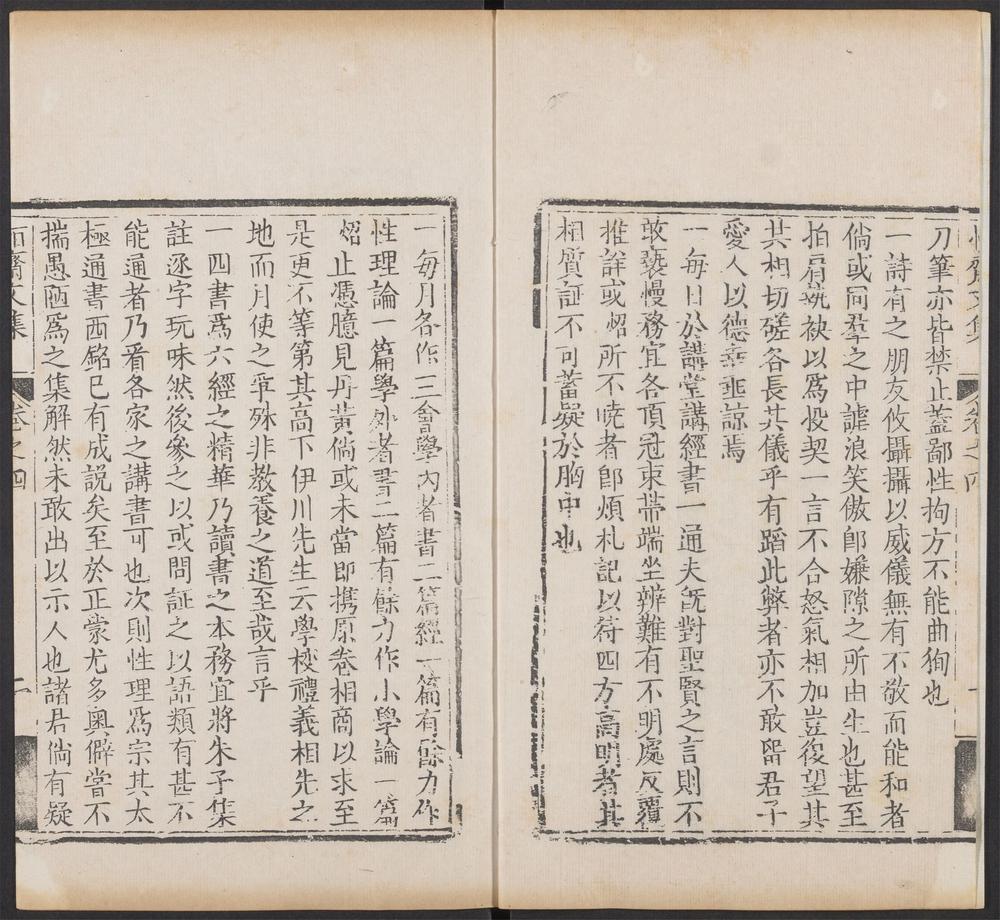 齋文集
卷之四
刀筆亦皆禁止蓋鄙性拘方不能曲狥也
一詩有之朋友攸攝攝以威儀無有不敬而能和者
倘或同羣之中謔浪笑傲卽嫌隙之所由生也甚至
拍肩執袂以爲投契一言不合怒氣相加豈復望其
共相切磋各長其儀乎有蹈此弊者亦不敢留君子
愛人以德幸垂諒焉
一每日於講堂講經書一通夫旣對聖賢之言則不
敢褻慢務宜各頂冠束帶端坐辨難有不明處反覆
推詳或炤所不曉者卽煩札記以待四方高明者共
相質証不可蓄疑於胸中也
一每月各作三會學內者書二篇經一篇有餘力作
性理論一篇學外者書二篇有餘力作小學論一篇
炤止憑臆見丹黃倘或未當即携原卷相商以求至
是更不等第其高下伊川先生云學校禮義相先之
地而月使之爭殊非敎養之道至哉言乎
一四書爲六經之精華乃讀書之本務宜將朱子集
註逐字玩味然後參之以或問証之以語類有甚不
能通者乃看各家之講書可也次則性理爲宗其太
極通書西銘已有成說矣至於正蒙尤多奧僻嘗不
揣愚陋爲之集解然未敢出以示人也諸君倘有疑
齋文集
卷之四
二